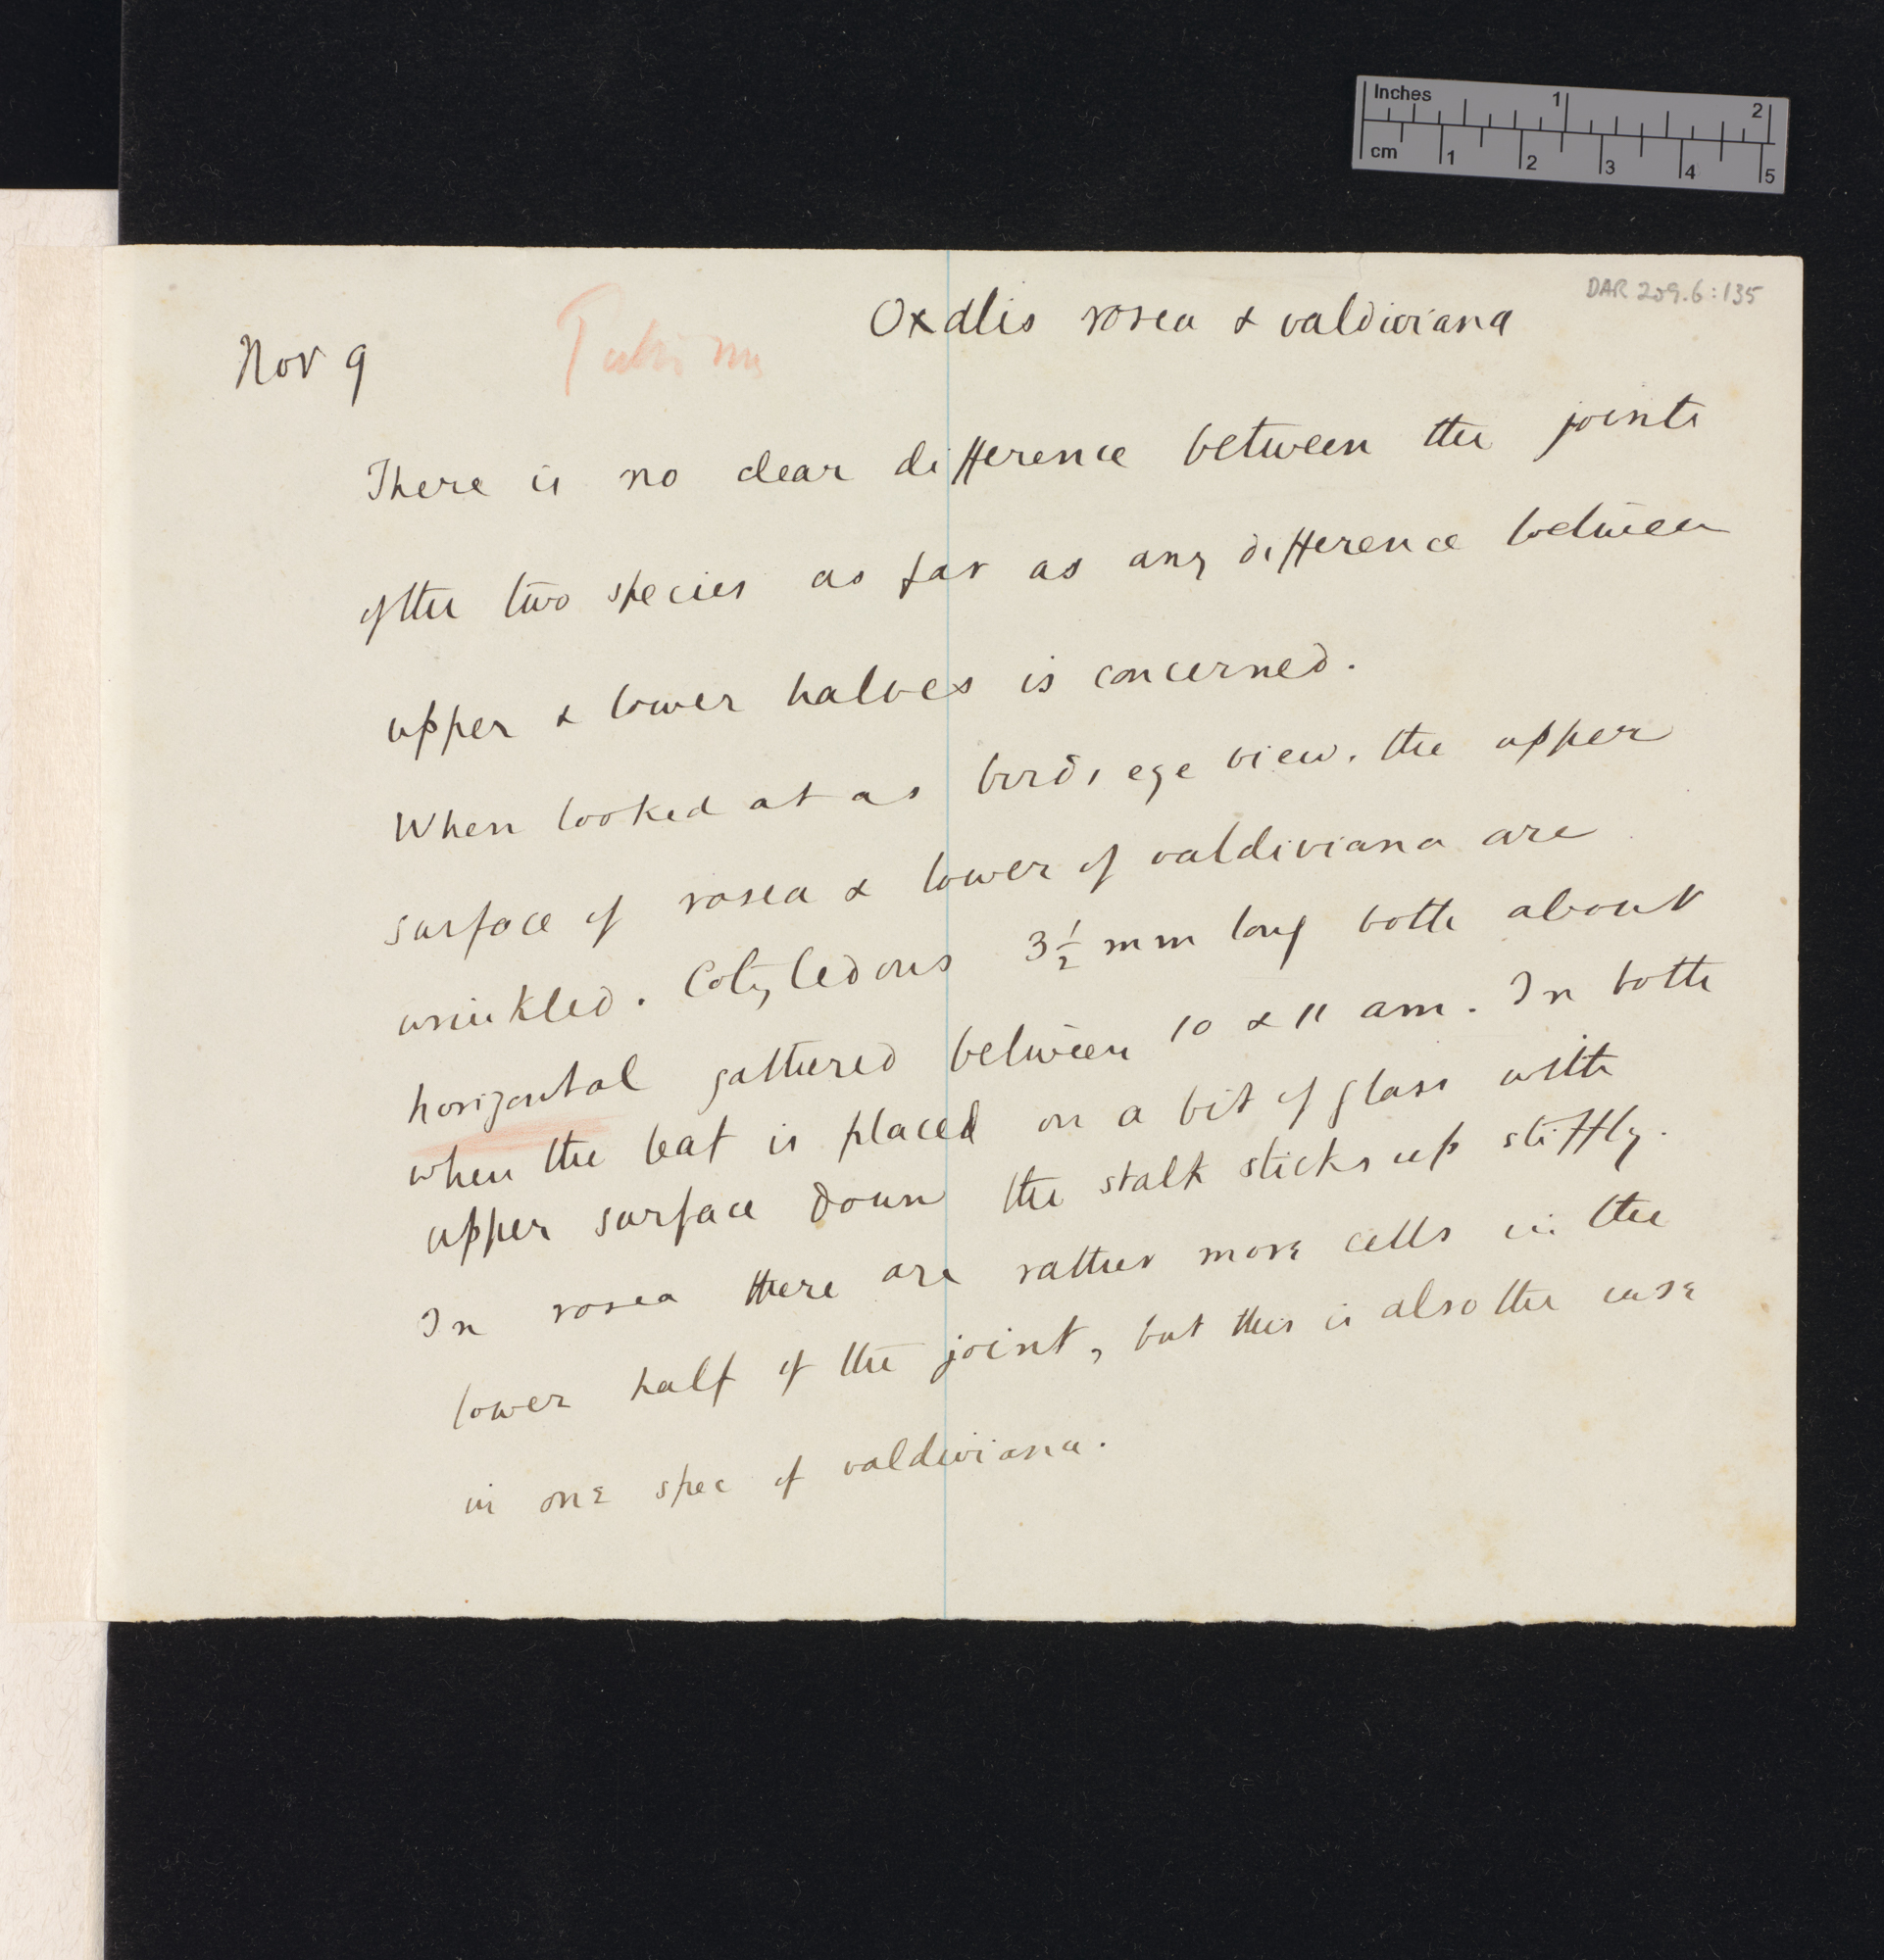 Inches 1 2
cm 1 2 3 4 5
DAR 209.6:135
Oxalis rosea & valdiviana
Nov 9
There is no clear difference between the joints
of the two species as far as any difference between
upper & lower halves is concerned.
When looked at as birds eye view, the upper
surface of rosea & lower of valdiviana are
wrinkled. Cotyledons 3½ mm long both about
horizontal gathered between 10 & 11 am. In both
when the leaf is placed on a bit of glass with
upper surface down the stalk sticks up stiffly.
In rosea there are rather more cells in the
lower half of the joint, but this is also the case
in one spec of valdiviana.